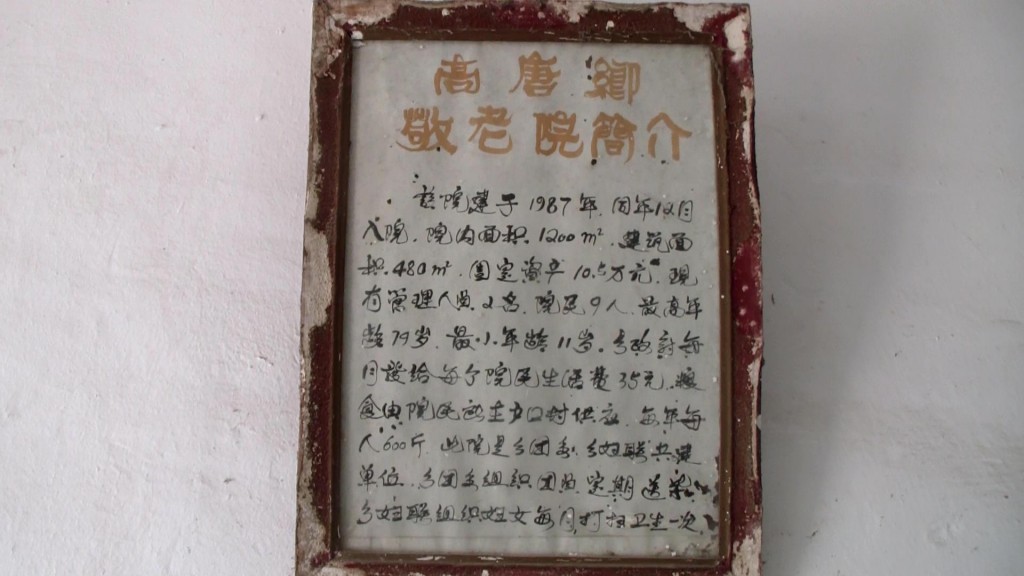 高唐鄉
敬老院簡介
该院建于1987年.同年12月
入院.院内面积.1200m².建筑面
积.480m².固定资产10.5万元.现
有管理人员2名.院民9人.最高年
龄79岁.最小年龄11岁.乡政府每
月发给每个院民生活费35元.粮
食由院民所在户口村供应.每年每
人600斤.此院是乡团委.乡妇联共建
单位.乡团委组织团员定期送柴
乡妇联组织妇女每月打扫卫生一次